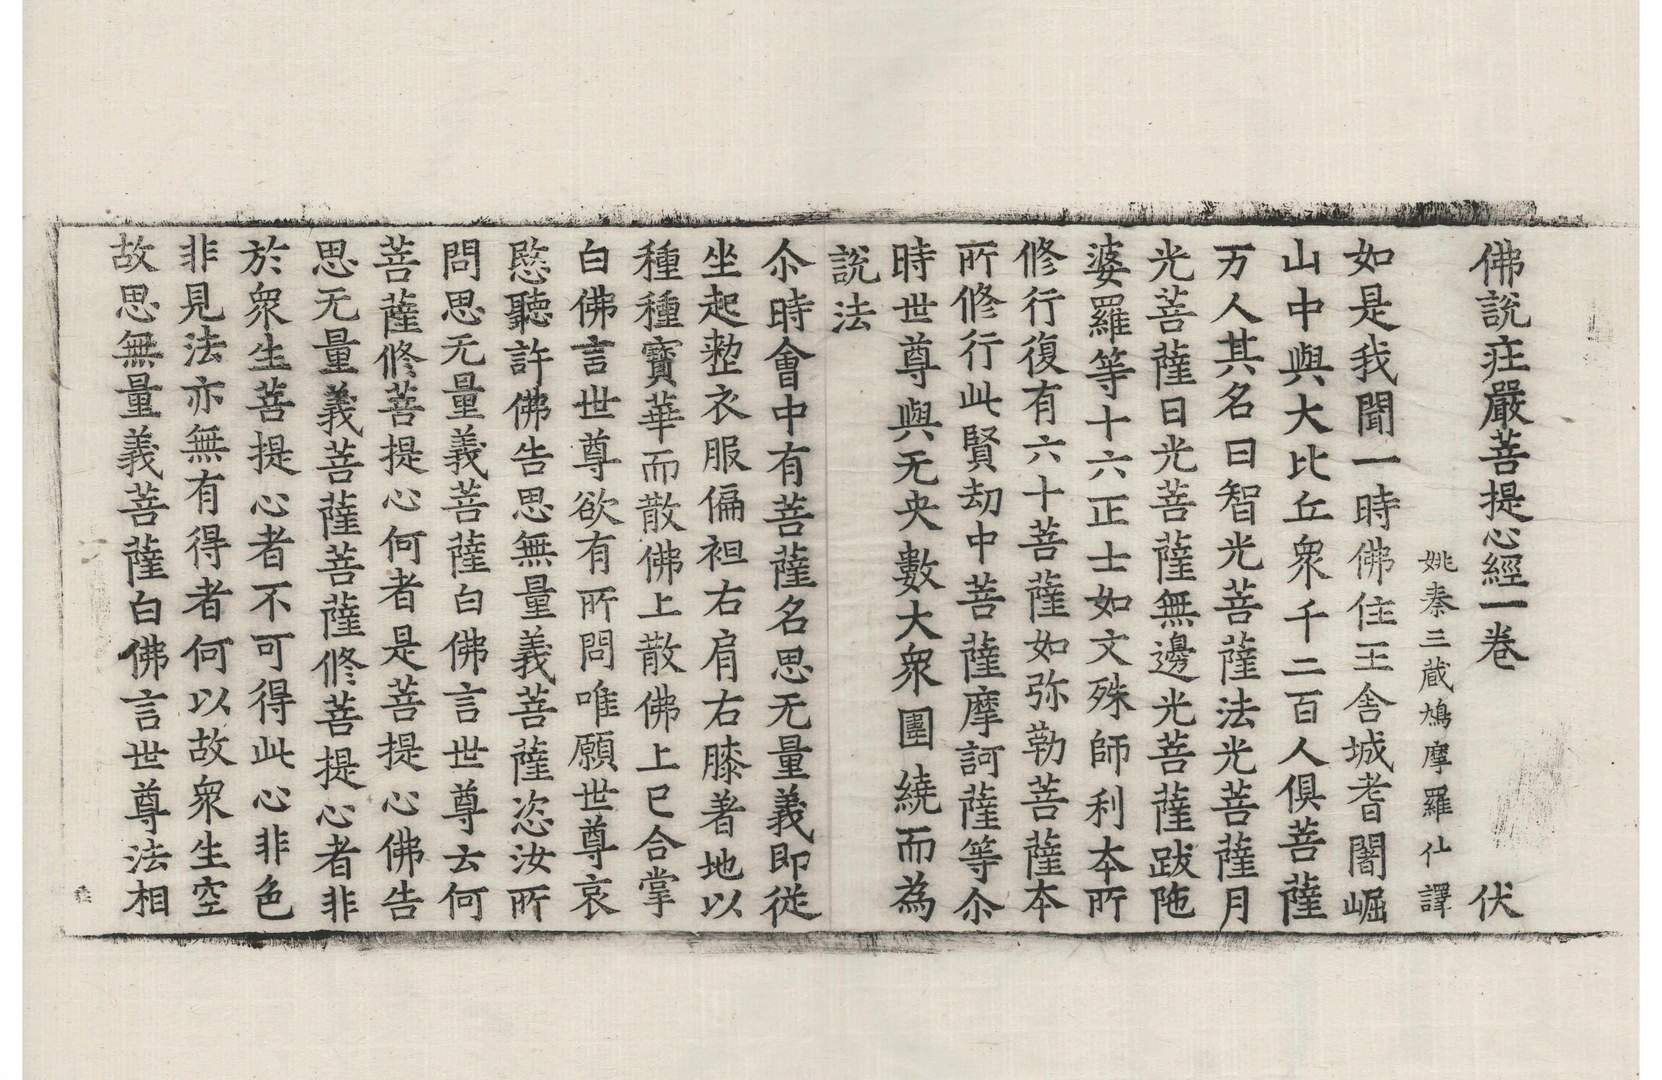 佛說庄嚴菩提心經一卷　伏
姚秦三藏鳩摩羅什譯
如是我聞一時佛住王舍城耆闍崛
山中與大比丘衆千二百人俱菩薩
万人其名曰智光菩薩法光菩薩月
光菩薩日光菩薩無邊光菩薩跋陁
婆羅等十六正士如文殊師利本所
修行復有六十菩薩如弥勒菩薩本
所修行此賢劫中菩薩摩訶薩等尒
時世尊與无央數大衆圍繞而為
說法
尒時會中有菩薩名思无量義即從
坐起整衣服偏袒右肩右膝著地以
種種寶華而散佛上散佛上已合掌
白佛言世尊欲有所問唯願世尊哀
愍聽許佛告思無量義菩薩恣汝所
問思无量義菩薩白佛言世尊云何
菩薩修菩提心何者是菩提心佛告
思无量義菩薩菩薩修菩提心者非
於衆生菩提心者不可得此心非色
非見法亦無有得者何以故衆生空
故思無量義菩薩白佛言世尊法相